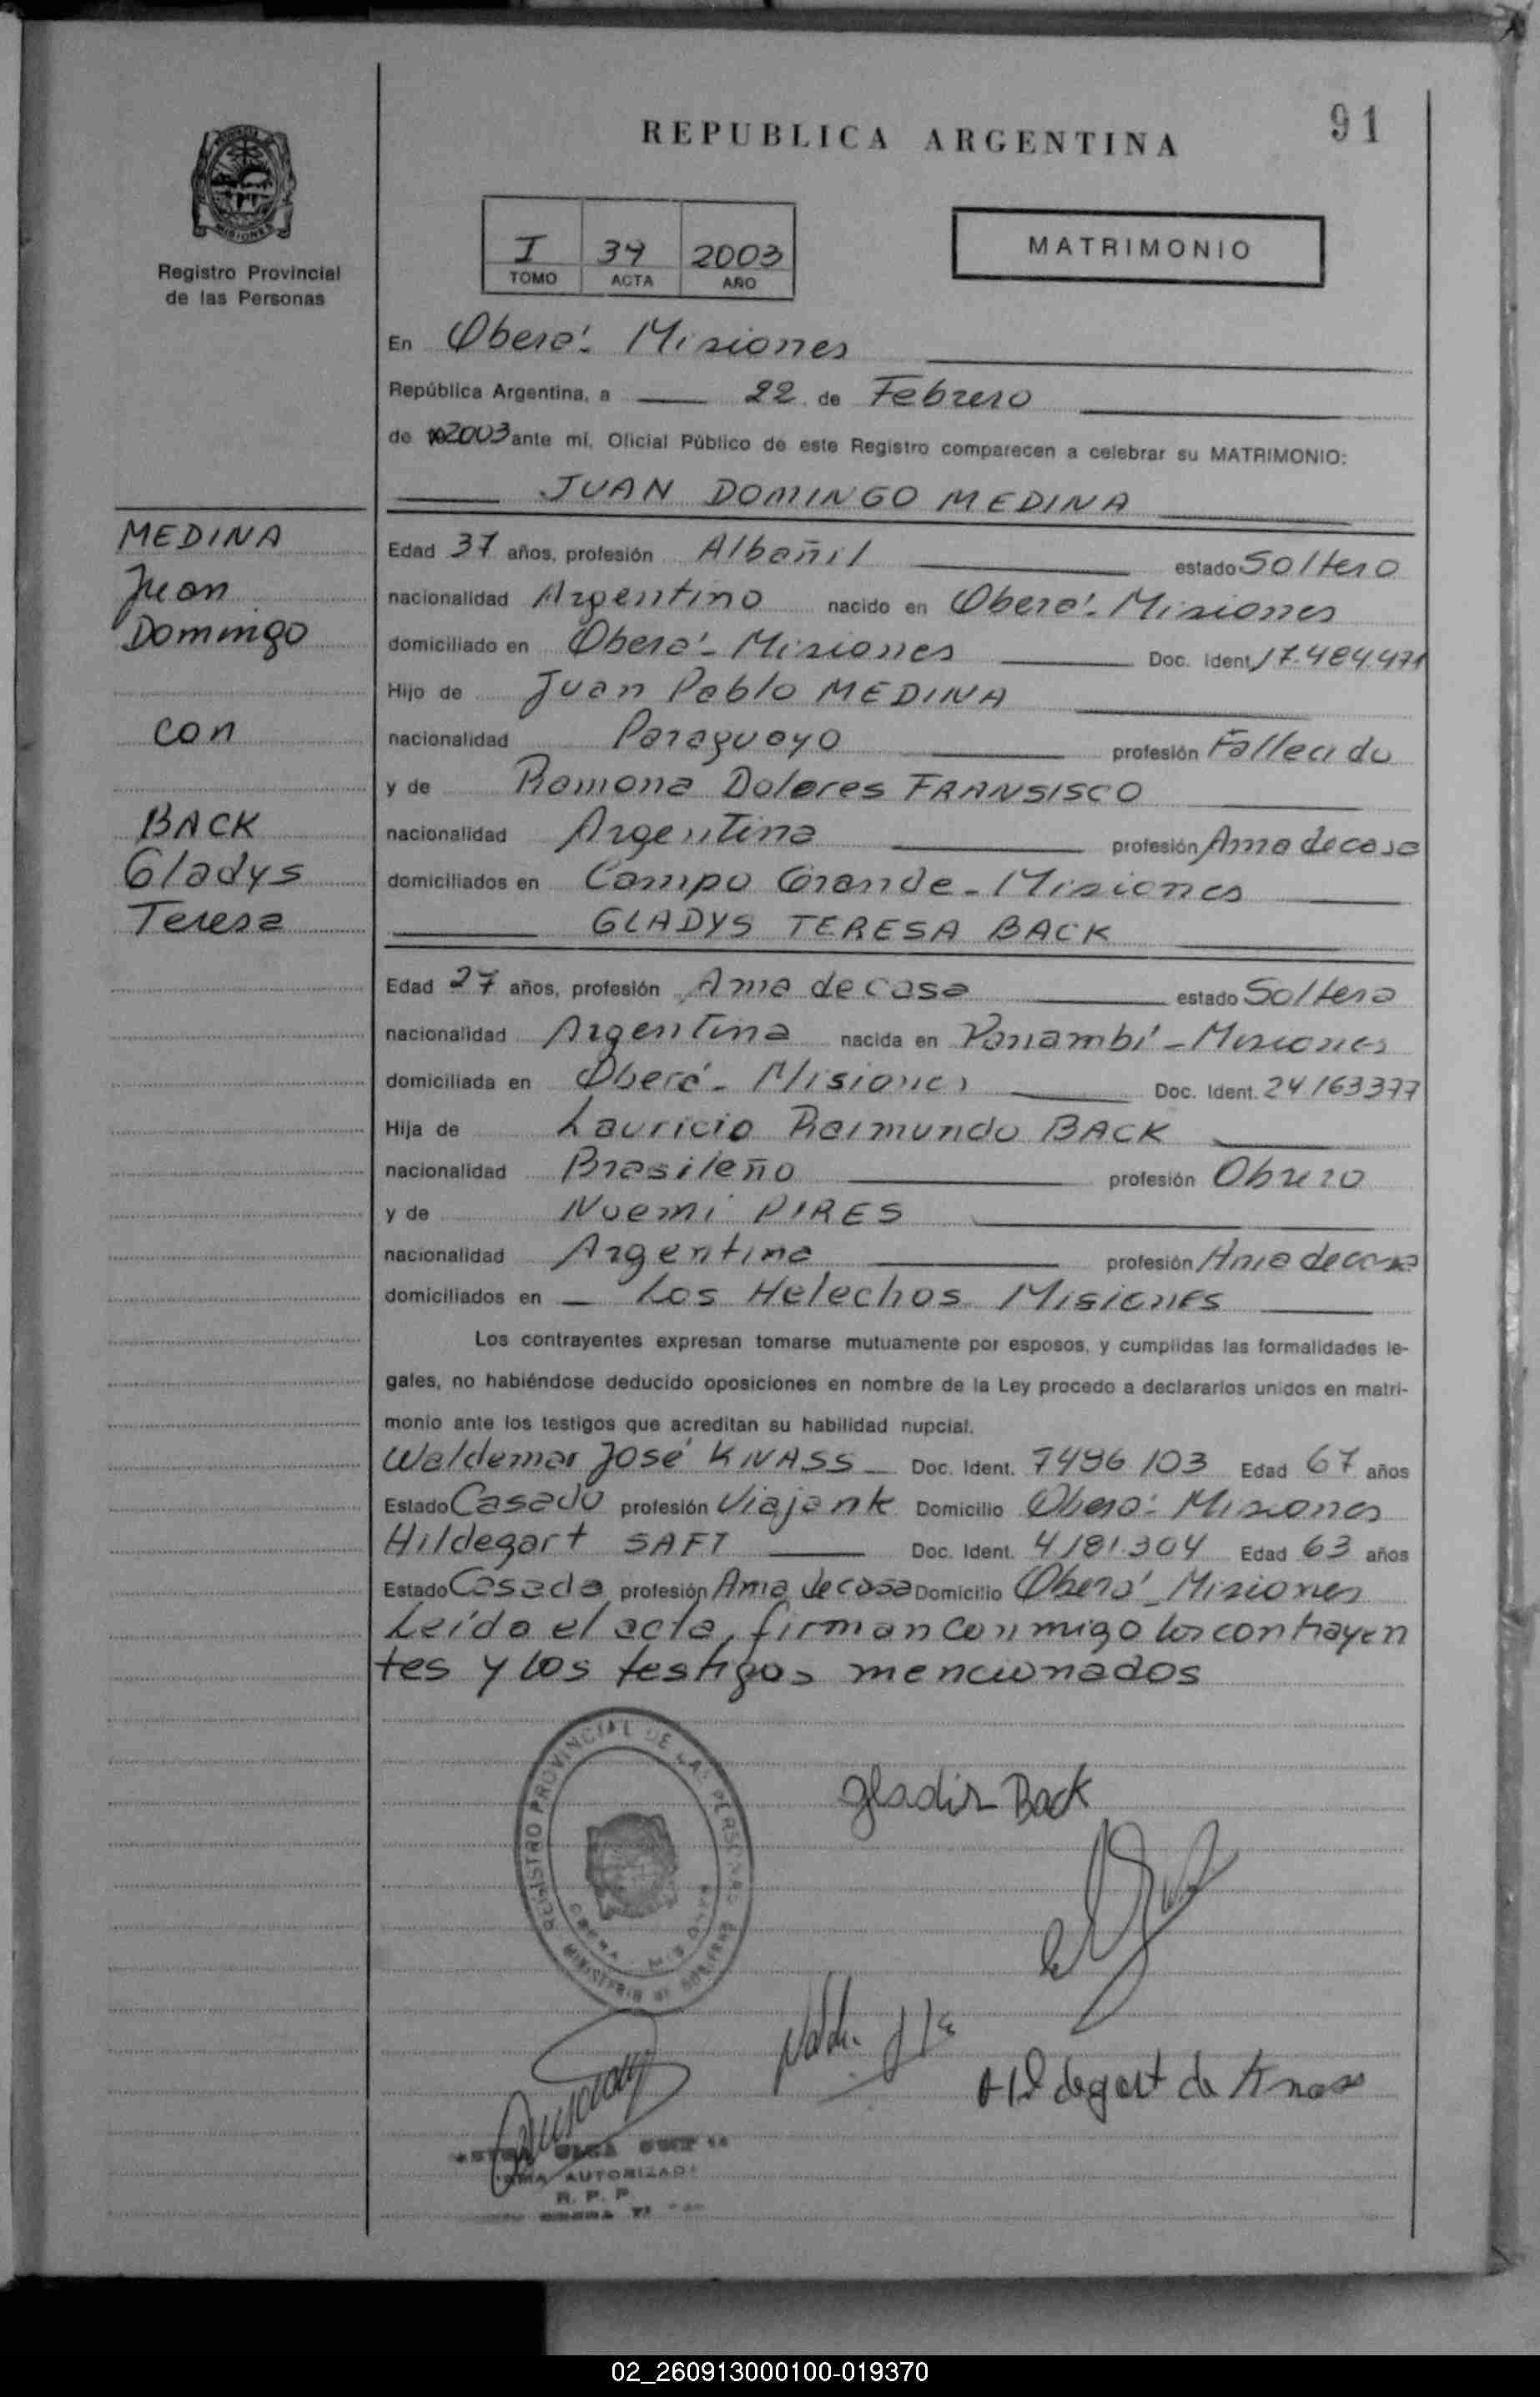 91
REPUBLICA ARGENTINA
MISIONES
Registro Provincial
de las Personas
I 34 2003
TOMO ACTA AÑO
MATRIMONIO
En Oberá - Misiones
República Argentina, a 22 de Febrero
de 2003 ante mí, Oficial Público de este Registro comparecen a celebrar su MATRIMONIO:
JUAN DOMINGO MEDINA
MEDINA
Juan
Domingo
con
BACK
Gladys
Teresa
Edad 37 años, profesión Albañil estado Soltero
nacionalidad Argentino nacido en Oberá - Misiones
domiciliado en Oberá - Misiones Doc. Ident. 17.484.471
Hijo de Juan Pablo MEDINA
nacionalidad Paraguayo profesión Fallecido
y de Ramona Dolores FRANSISCO
nacionalidad Argentina profesión Ama de casa
domiciliados en Campo Grande - Misiones
GLADYS TERESA BACK
Edad 27 años, profesión Ama de casa estado Soltera
nacionalidad Argentina nacida en Panambí - Misiones
domiciliada en Oberá - Misiones Doc. Ident. 24163377
Hija de Lauricio Raimundo BACK
nacionalidad Brasileño profesión Obrero
y de Nuemi PIRES
nacionalidad Argentina profesión Ama de casa
domiciliados en Los Helechos Misiones
Los contrayentes expresan tomarse mutuamente por esposos, y cumplidas las formalidades le-
gales, no habiéndose deducido oposiciones en nombre de la Ley procedo a declararlos unidos en matri-
monio ante los testigos que acreditan su habilidad nupcial.
Waldemar José KNASS Doc. Ident. 7496103 Edad 67 años
Estado Casado profesión Viajante Domicilio Oberá - Misiones
Hildegart SAFT Doc. Ident. 4181.304 Edad 63 años
Estado Casada profesión Ama de casa Domicilio Oberá - Misiones
Leída el acta, firman conmigo los contrayen
tes y los testigos mencionados
REGISTRO PROVINCIAL DE LAS PERSONAS
MINISTERIO DE GOBIERNO
OBERA
gladis Back
Hildegart de Knass
AUTORIZADA
R. P. P.
02_260913000100-019370